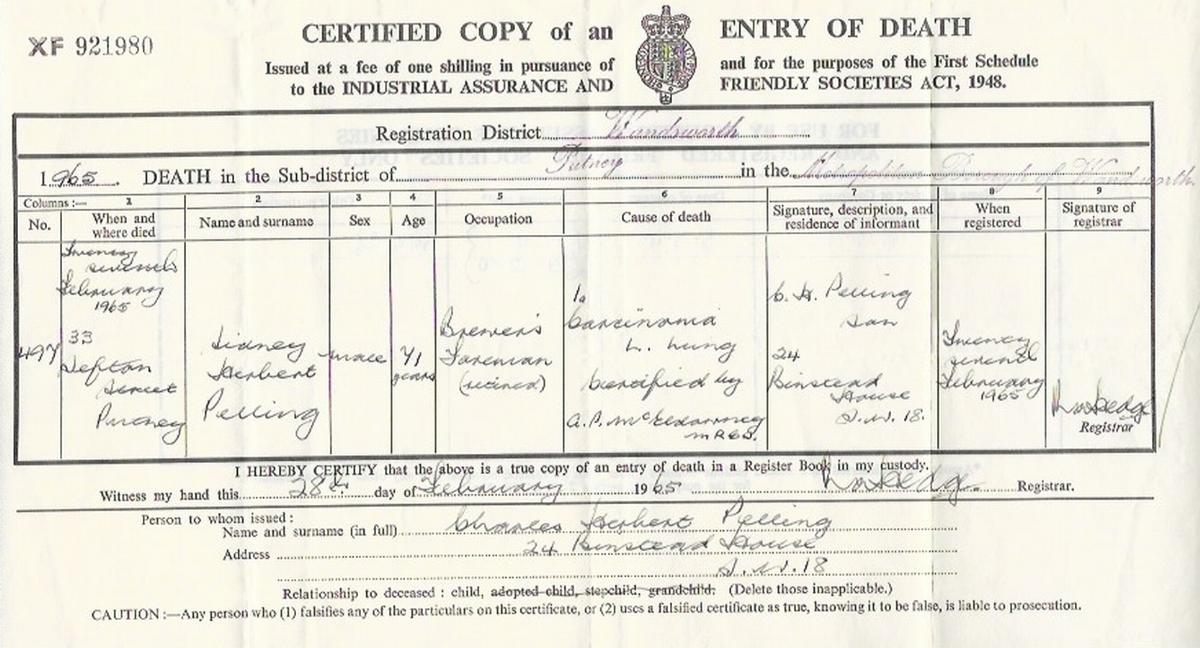 XF 921980
CERTIFIED COPY of an ENTRY OF DEATH
Issued at a fee of one shilling in pursuance of and for the purposes of the First Schedule
to the INDUSTRIAL ASSURANCE AND FRIENDLY SOCIETIES ACT, 1948.
Registration District Wandsworth
1965. DEATH in the Sub-district of Putney in the Metropolitan Borough of Wandsworth.
Columns :— 1 2 3 4 5 6 7 8 9
No. When and where died Name and surname Sex Age Occupation Cause of death Signature, description, and residence of informant When registered Signature of registrar
497
Twenty
seventh
February
1965
33
Sefton
Street
Putney
Sidney
Herbert
Pelling
male
71
years
Brewer's
Foreman
(retired)
1a
Carcinoma
L. Lung
Certified by
MRCS.
C. H. Pelling
Son
24
Binstead
House
S.W. 18.
Twenty
seventh
February
1965
Registrar
I HEREBY CERTIFY that the above is a true copy of an entry of death in a Register Book in my custody.
Witness my hand this 28th day of February 1965 Registrar.
Person to whom issued :
Name and surname (in full) Charles Herbert Pelling
Address 24 Binstead House
S.W. 18
Relationship to deceased : child, adopted child, stepchild, grandchild. (Delete those inapplicable.)
CAUTION :—Any person who (1) falsifies any of the particulars on this certificate, or (2) uses a falsified certificate as true, knowing it to be false, is liable to prosecution.